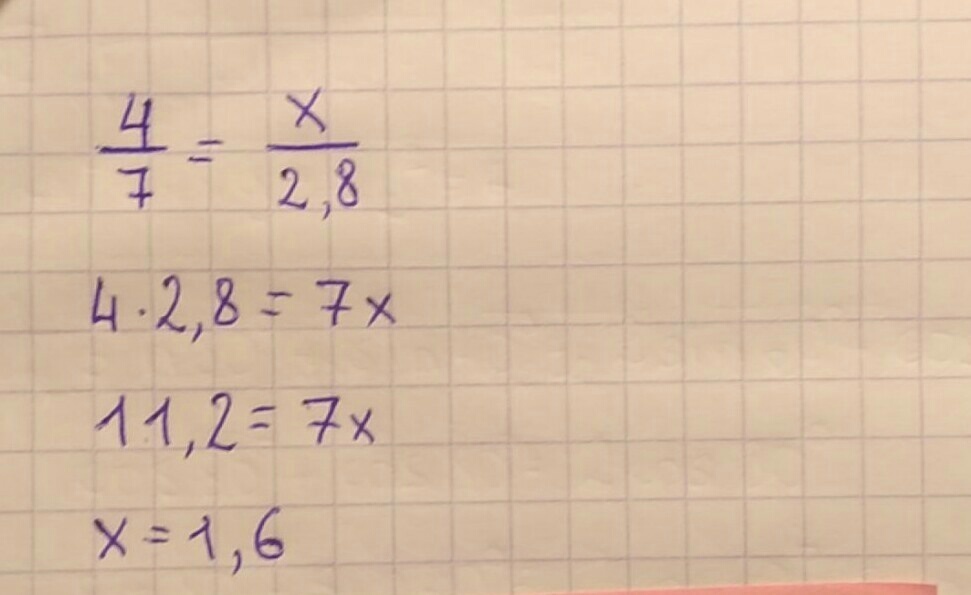 4/7 = x/2,8
4·2,8 = 7x
11,2 = 7x
x = 1,6